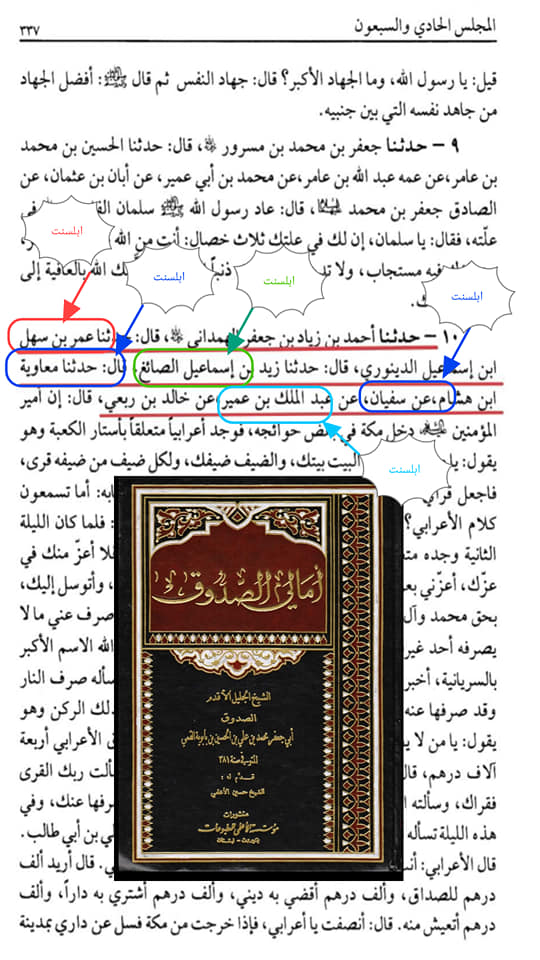 المجلس الحادي والسبعون ٣٣٧
قيل: يا رسول الله، وما الجهاد الأكبر؟ قال: جهاد النفس ثم قال ﷺ: أفضل الجهاد
من جاهد نفسه التي بين جنبيه.
٩ – حدثنا جعفر بن محمد بن مسرور، قال: حدثنا الحسين بن محمد
بن عامر، عن عمه عبد الله بن عامر، عن محمد بن أبي عمير، عن أبان بن عثمان، عن
الصادق جعفر بن محمد، قال: عاد رسول الله ﷺ سلمان في
علّته، فقال: يا سلمان، إن لك في علتك ثلاث خصال: أنت من الله
فيه مستجاب، ولا ذنباً الله بالعافية إلى
ابلسنت
ابلسنت
ابلسنت
ابلسنت
١٠ – حدثنا أحمد بن زياد بن جعفر الهمداني، قال: حدثنا عمر بن سهل
ابن إسماعيل الدينوري، قال: حدثنا زيد بن إسماعيل الصائغ، قال: حدثنا معاوية
ابن هشام، عن سفيان، عن عبد الملك بن عمير، عن خالد بن ربعي، قال: إن أمير
المؤمنين دخل مكة في بعض حوائجه، فوجد أعرابياً متعلقاً بأستار الكعبة وهو
يقول: البيت بيتك، والضيف ضيفك، ولكل ضيف من ضيفه قرى،
ابلسنت
فاجعل أما تسمعون
كلام الأعرابي؟ فلما كان الليلة
الثانية وجده أعزّ منك في
عزّك، أعزّني وأتوسل إليك،
بحق محمد صرف عني ما لا
يصرفه أحد الله الاسم الأكبر
بالسريانية، صرف النار
وقد صرفها عنه الركن وهو
يقول: يا من لا الأعرابي أربعة
آلاف درهم، ربك القرى
فقراك، وسألته عنك، وفي
هذه الليلة تسأله بن أبي طالب.
قال الأعرابي: قال أريد ألف
درهم للصداق، وألف درهم أقضي به ديني، وألف درهم أشتري به داراً، وألف
درهم أتعيش منه. قال: أنصفت يا أعرابي، فإذا خرجت من مكة فسل عن داري بمدينة
أمالي الصدوق
الشيخ الجليل الأقدم
الصدوق
أبي جعفر محمد بن علي بن الحسين بن بابويه القمي
المتوفى سنة ٣٨١
قدم له:
الشيخ حسين الأعلمي
منشورات
مؤسسة الأعلمي للمطبوعات
بيروت - لبنان